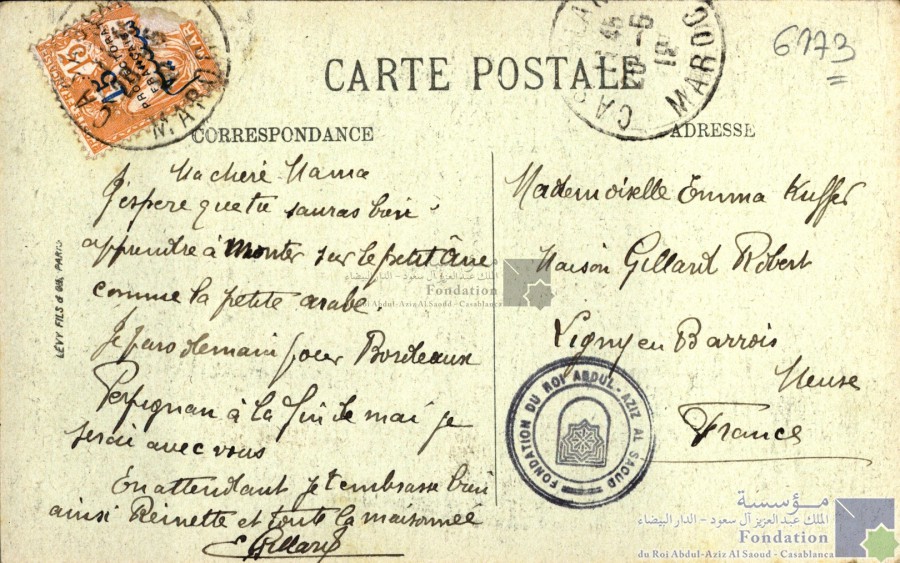 6173
CARTE POSTALE
CORRESPONDANCE
ADRESSE
CASABLANCA
MAROC
20 - 5
MAROC
Ma cheré Mama
J'espere que tu sauras bien
apprendre à monter sur le petit âne
comme la petite arabe.
Je pars demain pour Bordeaux
Perpignan à la fin de mai je
serai avec vous
En attendant je t'embrasse bien
ainsi Reinette et toute la maisonneé
Gillard
Mademoiselle Emma Kuffer
Maison Gillard Robert
Ligny en Barrois
Meuse
France
LÉVY FILS & Cie, PARIS
مؤسسة
الملك عبد العزيز آل سعود - الدار البيضاء
Fondation
du Roi Abdul-Aziz Al Saoud - Casablanca
FONDATION DU ROI ABDUL-AZIZ AL SAOUD
مؤسسة
الملك عبد العزيز آل سعود - الدار البيضاء
Fondation
du Roi Abdul-Aziz Al Saoud - Casablanca